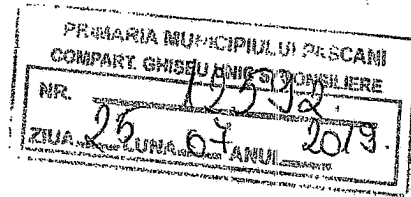 PRIMARIA MUNICIPIULUI PASCANI
COMPART. GHISEU UNIC SI CONSILIERE
NR.
ZIUA 25 LUNA 07 ANUL 2019.